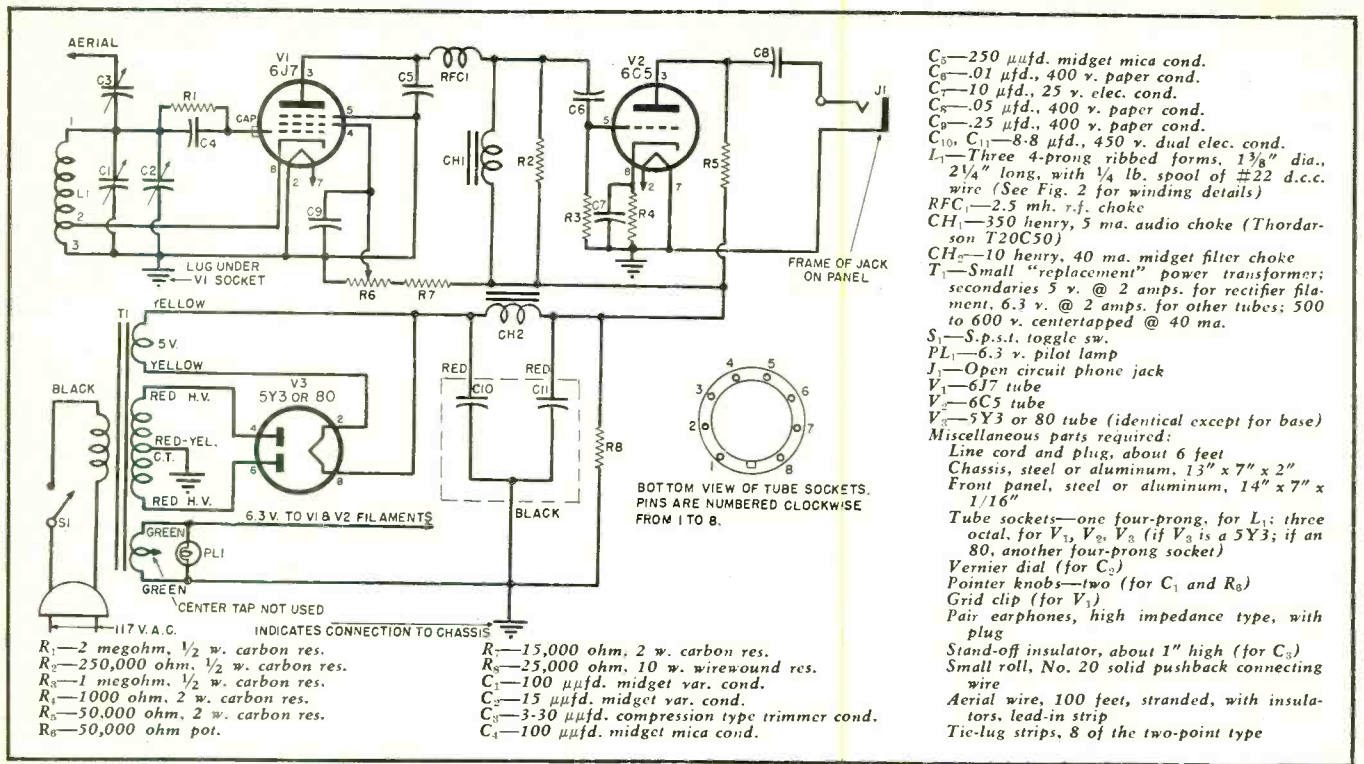 AERIAL
C3
R1
1
CAP
C4
L1
C1
C2
2
3
8
2
7
V1
6J7
3
5
4
C5
RFC1
C9
LUG UNDER
V1 SOCKET
R6
R7
CH1
R2
C6
V2
6C5
3
5
8
2
7
R3
C7
R4
R5
C8
J1
FRAME OF JACK
ON PANEL
T1
YELLOW
5 V.
YELLOW
BLACK
RED H.V.
RED-YEL.
C.T.
RED H.V.
V3
5Y3 OR 80
4
6
2
8
CH2
RED
C10
RED
C11
BLACK
R8
6.3 V. TO V1 & V2 FILAMENTS
GREEN
PL1
GREEN
CENTER TAP NOT USED
S1
117 V. A.C.
INDICATES CONNECTION TO CHASSIS
1
2
3
4
5
6
7
8
BOTTOM VIEW OF TUBE SOCKETS.
PINS ARE NUMBERED CLOCKWISE
FROM 1 TO 8.
R₁—2 megohm, 1/2 w. carbon res.
R₂—250,000 ohm, 1/2 w. carbon res.
R₃—1 megohm, 1/2 w. carbon res.
R₄—1000 ohm, 2 w. carbon res.
R₅—50,000 ohm, 2 w. carbon res.
R₆—50,000 ohm pot.
R₇—15,000 ohm, 2 w. carbon res.
R₈—25,000 ohm, 10 w. wirewound res.
C₁—100 μμfd. midget var. cond.
C₂—15 μμfd. midget var. cond.
C₃—3-30 μμfd. compression type trimmer cond.
C₄—100 μμfd. midget mica cond.
C₅—250 μμfd. midget mica cond.
C₆—.01 μfd., 400 v. paper cond.
C₇—10 μfd., 25 v. elec. cond.
C₈—.05 μfd., 400 v. paper cond.
C₉—.25 μfd., 400 v. paper cond.
C₁₀, C₁₁—8-8 μfd., 450 v. dual elec. cond.
L₁—Three 4-prong ribbed forms, 1 3/8" dia.,
2 1/4" long, with 1/4 lb. spool of #22 d.c.c.
wire (See Fig. 2 for winding details)
RFC₁—2.5 mh. r.f. choke
CH₁—350 henry, 5 ma. audio choke (Thordar-
son T20C50)
CH₂—10 henry, 40 ma. midget filter choke
T₁—Small "replacement" power transformer;
secondaries 5 v. @ 2 amps. for rectifier fila-
ment, 6.3 v. @ 2 amps. for other tubes; 500
to 600 v. centertapped @ 40 ma.
S₁—S.p.s.t. toggle sw.
PL₁—6.3 v. pilot lamp
J₁—Open circuit phone jack
V₁—6J7 tube
V₂—6C5 tube
V₃—5Y3 or 80 tube (identical except for base)
Miscellaneous parts required:
Line cord and plug, about 6 feet
Chassis, steel or aluminum, 13" x 7" x 2"
Front panel, steel or aluminum, 14" x 7" x
1/16"
Tube sockets—one four-prong, for L₁; three
octal, for V₁, V₂, V₃ (if V₃ is a 5Y3; if an
80, another four-prong socket)
Vernier dial (for C₂)
Pointer knobs—two (for C₁ and R₆)
Grid clip (for V₁)
Pair earphones, high impedance type, with
plug
Stand-off insulator, about 1" high (for C₃)
Small roll, No. 20 solid pushback connecting
wire
Aerial wire, 100 feet, stranded, with insula-
tors, lead-in strip
Tie-lug strips, 8 of the two-point type